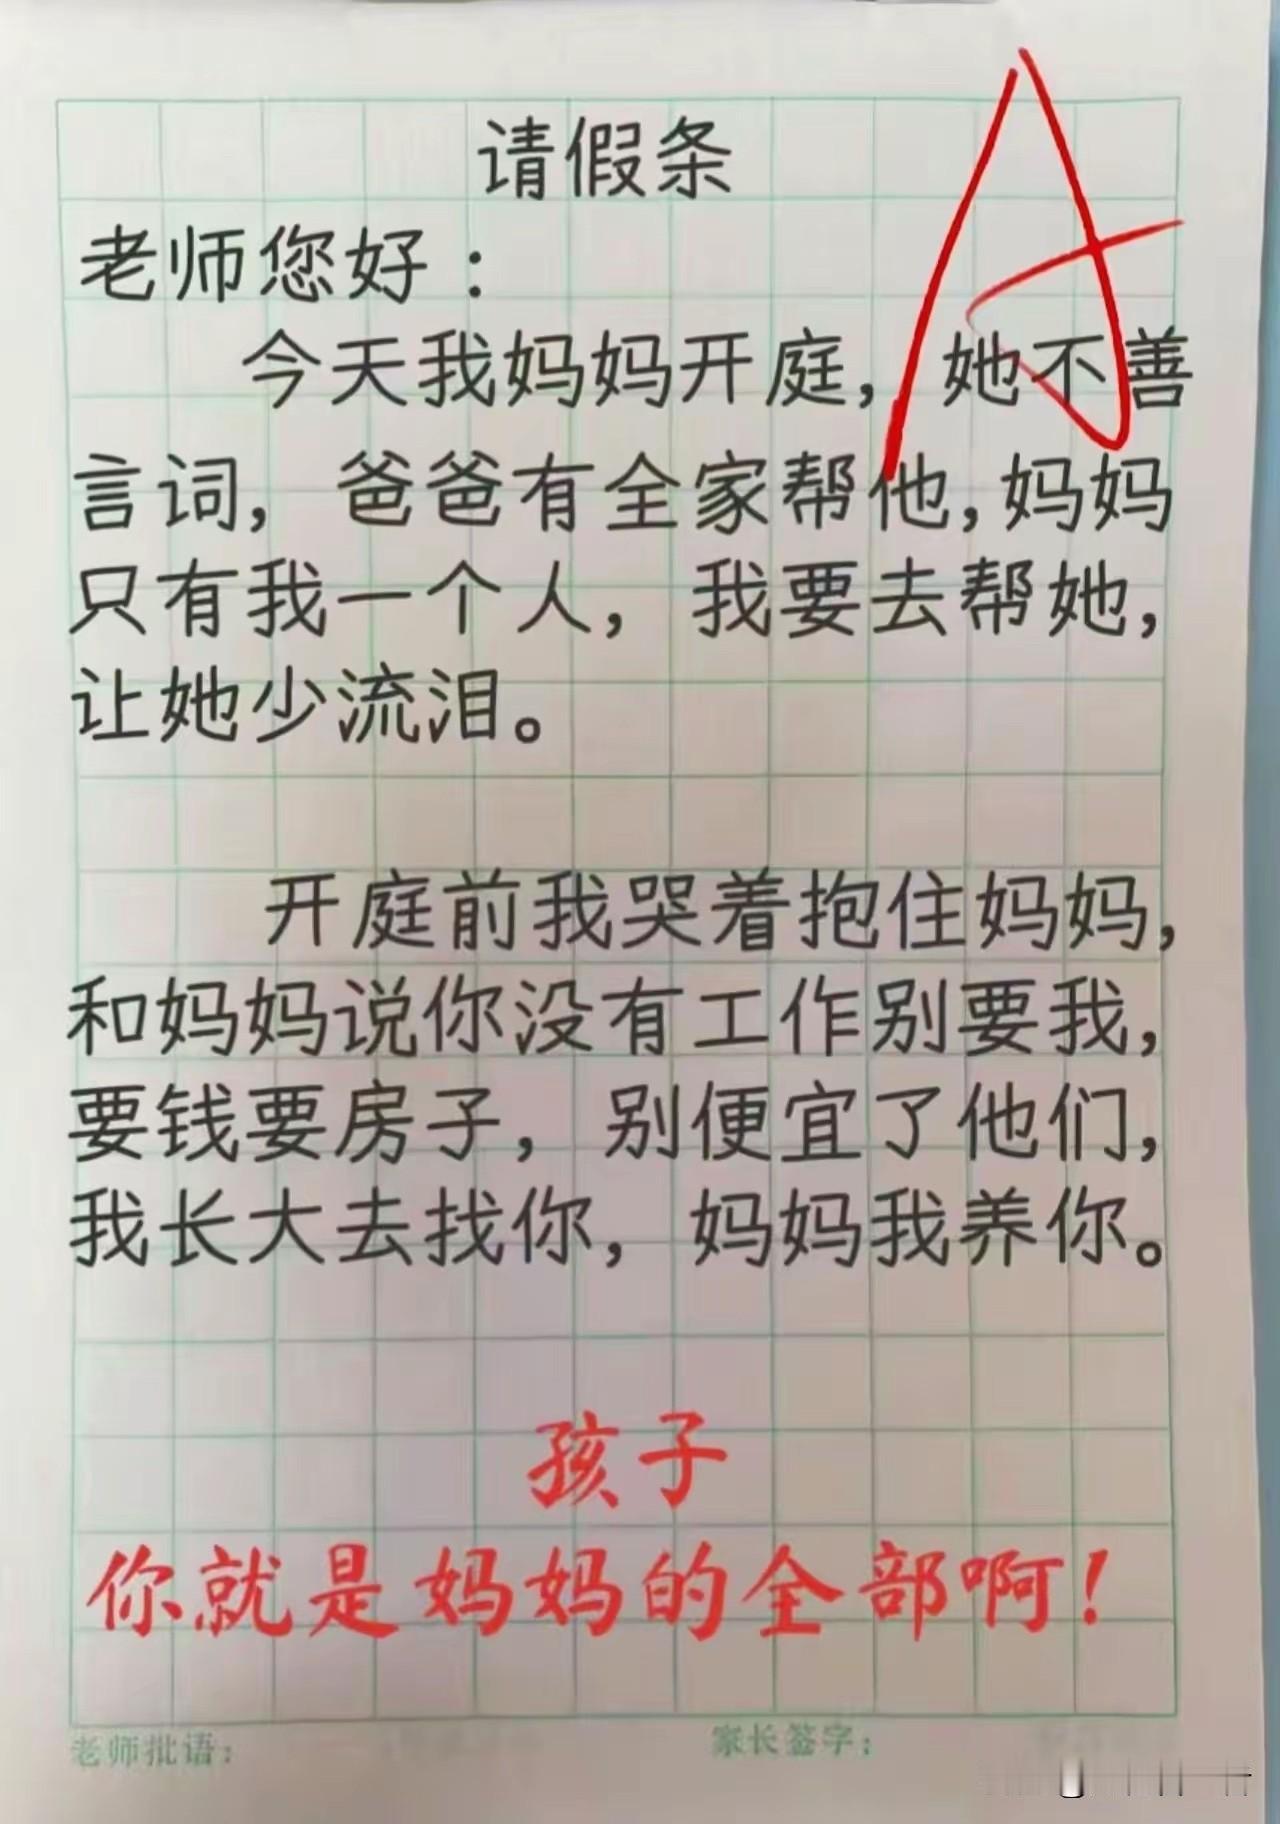 请假条
老师您好：
今天我妈妈开庭，她不善
言词，爸爸有全家帮他，妈妈
只有我一个人，我要去帮她，
让她少流泪。
开庭前我哭着抱住妈妈，
和妈妈说你没有工作别要我，
要钱要房子，别便宜了他们，
我长大去找你，妈妈我养你。
孩子
你就是妈妈的全部啊！
老师批语： 家长签字：